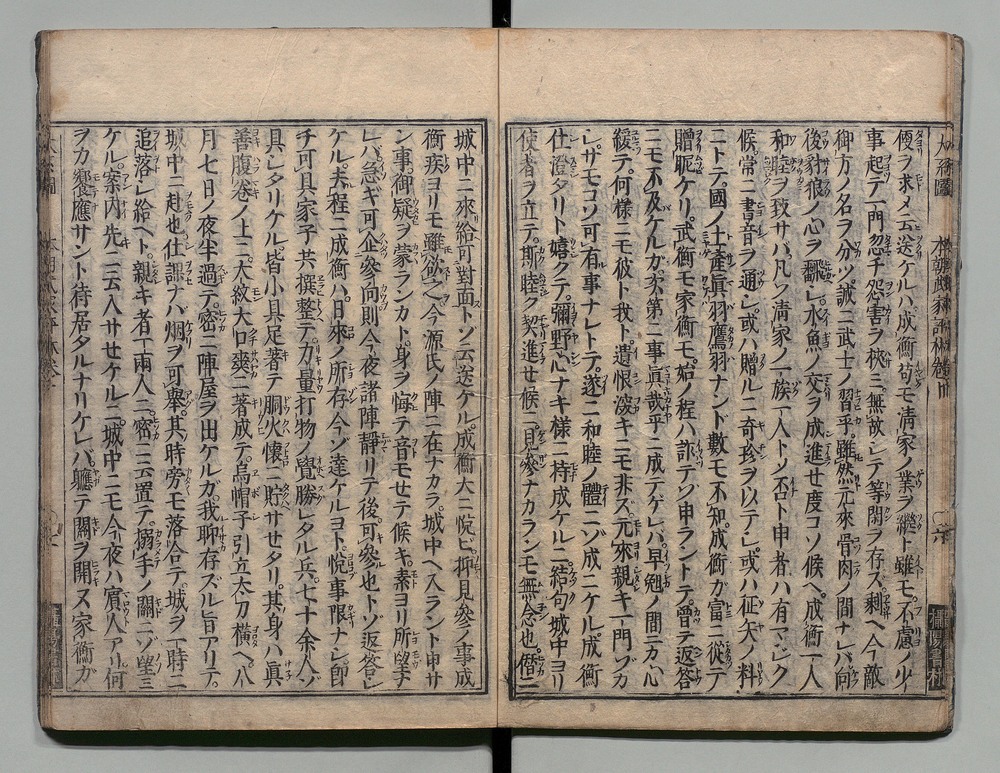 便ヲ求メ云送ケルハ成衡苟モ清家ノ業ヲ繼ト雖モ不慮ノ少
事起テ一門忽チ怨害ヲ挾三無故シテ等閑ヲ存ス剰ヘ今敵
御方ノ名ヲ分ツ誠ニ武士ノ習乎雖然元來骨肉ノ間ナレバ向
後豺狼ノ心ヲ飜シ水魚ノ交ヲ成進セ度コソ候ヘ成衡一人
和睦ヲ致サバ凡ソ清家ノ一族一人トソ否ト申者ハ有マジク
候常ニ書音ヲ通シ或ハ贈ルニ奇珍ヲ以テシ或ハ征矢ノ料
ニトテ國ノ土産眞羽鷹羽ナンド數モ不知成衡カ富ニ從テ
贈賑ケリ武衡モ家衡モ始ノ程ハ詐テゾ申ラントテ曾テ返答
ニモ不及ケルガ次第ニ事眞哉乎ニ成テゲレバ早勉ノ間方心
緩テ何様ニモ彼ト我ト遺恨深キニモ非ズ元來親キ一門ゾカ
シサモコソ可有事ナレトテ遂ニ和睦ノ體ニゾ成ニケル成衡
仕澄タリト嬉クテ彌野心ナキ様ニ持成ケルニ結句城中ヨリ
使者ヲ立テ斯睦ク契進セ候ニ見參ナカランモ無念也僭ニ
城中ニ來給可對面トソ云送ケル成衡大ニ悦ビ抑見參ノ事成
衡疾ヨリモ雖欲ヘ今源氏ノ陣ニ在ナカラ城中ヘ入ラント申サ
ン事御疑ヲ蒙ランカト身ヲ悔テ音モセテ候キ素ヨリ所望ナ
レバ急ギ可企參向則今夜諸陣靜リテ後可參也トゾ返答シ
ケル夫程ニ成衡ハ日來ノ所存今ゾ達ケルヨト悦事限ナシ即
チ可具家子共撰整テ力量打物ノ覺勝レタル兵七十余人ゾ
具シタリケル皆小具足著テ胴火懷ニ貯サセタリ其身ハ眞
善腹卷ノ上ニ大紋大口爽ニ著成テ烏帽子引立太刀橫ヘ八
月七日ノ夜半過テ密ニ陣屋ヲ出ケルガ我聊存ズル旨アリテ
城中ニ赴也仕課ナバ烟ヲ可擧其時旁モ落合テ城ヲ一時ニ
追落シ給ヘト親キ者一兩人ニ密ニ云置テ搦手ノ關ニゾ望三
ケル案内先ニ云入サセケルニ城中ニモ今夜ハ賓人アリ何
ヲカ饗應サント待居タルナリケレバ軈テ關ヲ開ス家衡カ